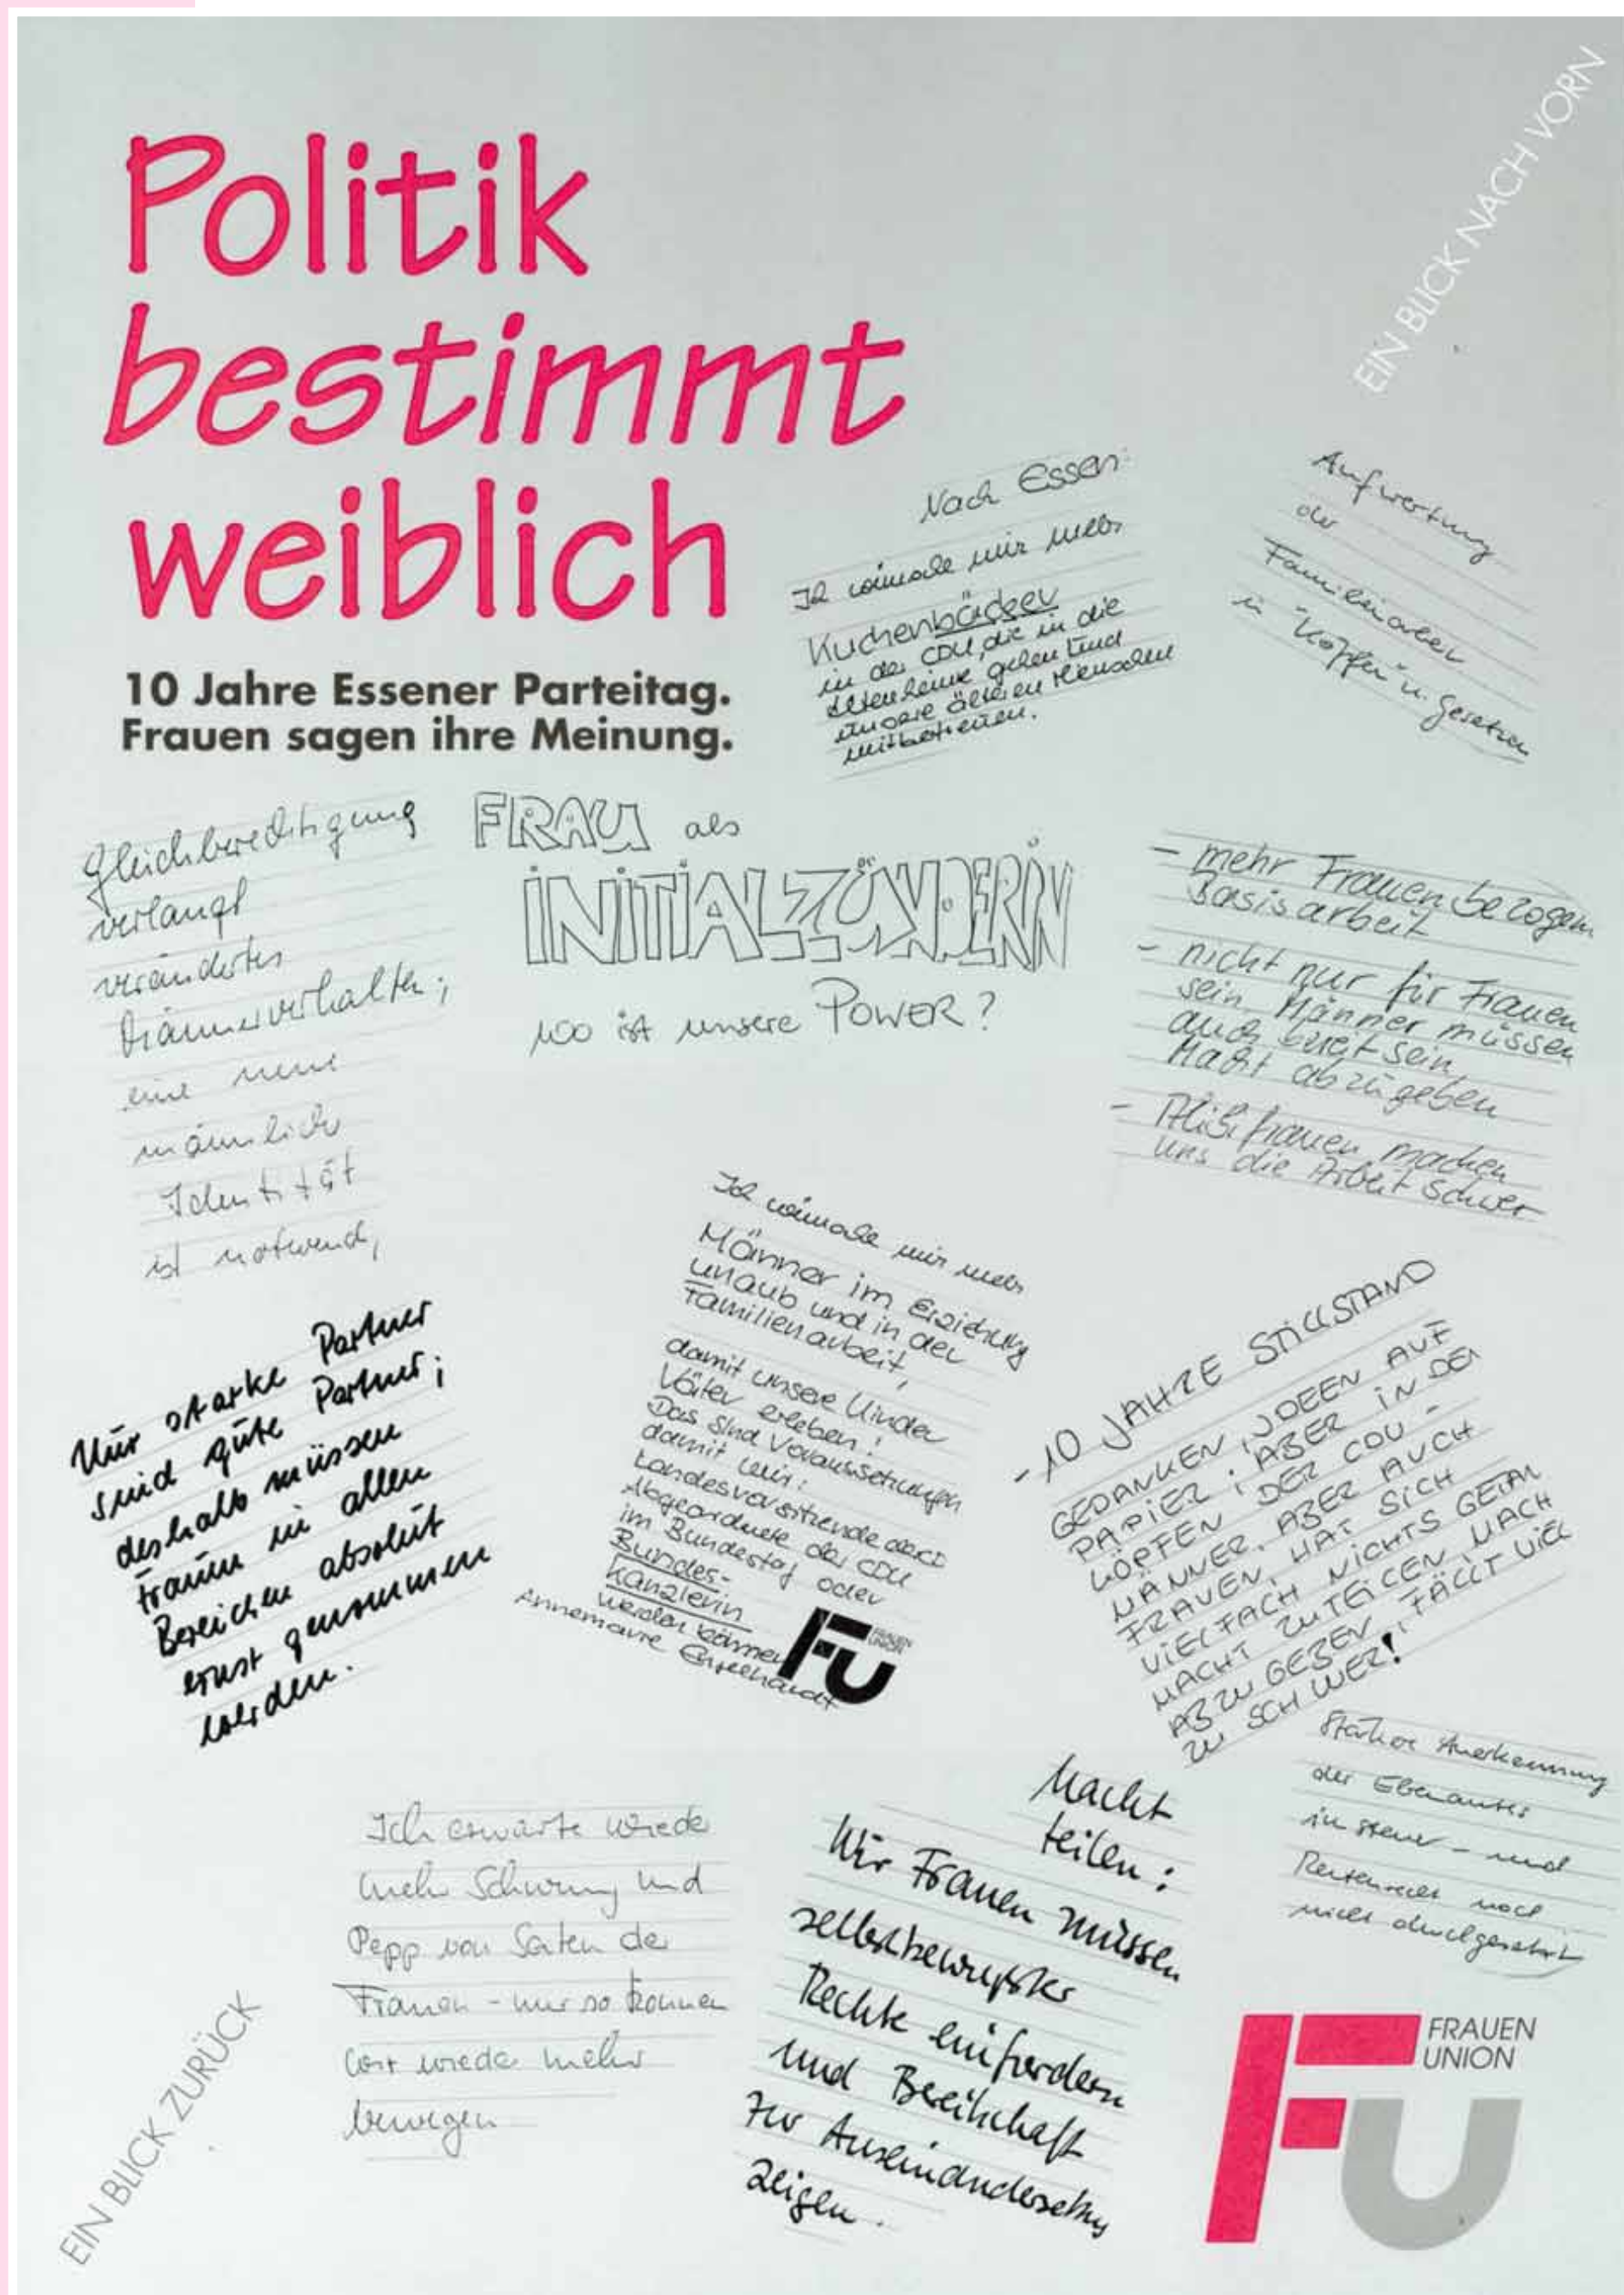 EIN BLICK NACH VORN
Politik
bestimmt
weiblich
10 Jahre Essener Parteitag.
Frauen sagen ihre Meinung.
Nach Essen:
Ich wünsche mir mehr
Kuchenbäcker
in der CDU, die in die
Altenheime gehen und
unsere älteren Menschen
mitbetreuen.
Aufwertung
der
Familienarbeit
in "Köpfen" u. Gesetzen
Gleichberechtigung
verlangt
verändertes
Männerverhalten;
eine neue
männliche
Identität
ist notwend,
FRAU als
INITIALZÜNDERIN
wo ist unsere POWER?
- mehr Frauen bezogene
Basisarbeit
- nicht nur für Frauen
sein, Männer müssen
auch bereit sein,
Macht abzugeben
- Alibifrauen machen
uns die Arbeit schwer
Nur starke Partner
sind gute Partner;
deshalb müssen
Frauen in allen
Bereichen absolut
ernst genommen
werden.
Ich wünsche mir mehr
Männer im Erziehung
urlaub und in der
Familienarbeit,
damit unsere Kinder
Väter erleben!
Das sind Voraussetzungen
damit wir:
Landesvorsitzende der CD
Abgeordnete der CDU
im Bundestag oder
Bundes-
kanzlerin
werden können
Annemarie
FU FRAUEN
UNION
-10 JAHRE STILLSTAND
GEDANKEN, IDEEN AUF
PAPIER; ABER IN DEN
KÖPFEN DER CDU -
MÄNNER, ABER AUCH
FRAUEN, HAT SICH
VIELFACH NICHTS GETAN
MACHT ZU TEILEN, MACH
ABZUGEBEN, FÄLLT VIEL
ZU SCHWER!
Stärkere Anerkennung
des Ehrenamtes
im Steuer- und
Rentenrecht noch
nicht durchgesetzt
Ich erwarte wieder
mehr Schwung und
Pepp von Seiten der
Frauen - nur so können
wir wieder mehr
bewegen
Macht
teilen:
Wir Frauen müssen
selbstbewußter
Rechte einfordern
und Bereitschaft
zur Auseinandersetzung
zeigen.
EIN BLICK ZURÜCK
FU FRAUEN
UNION